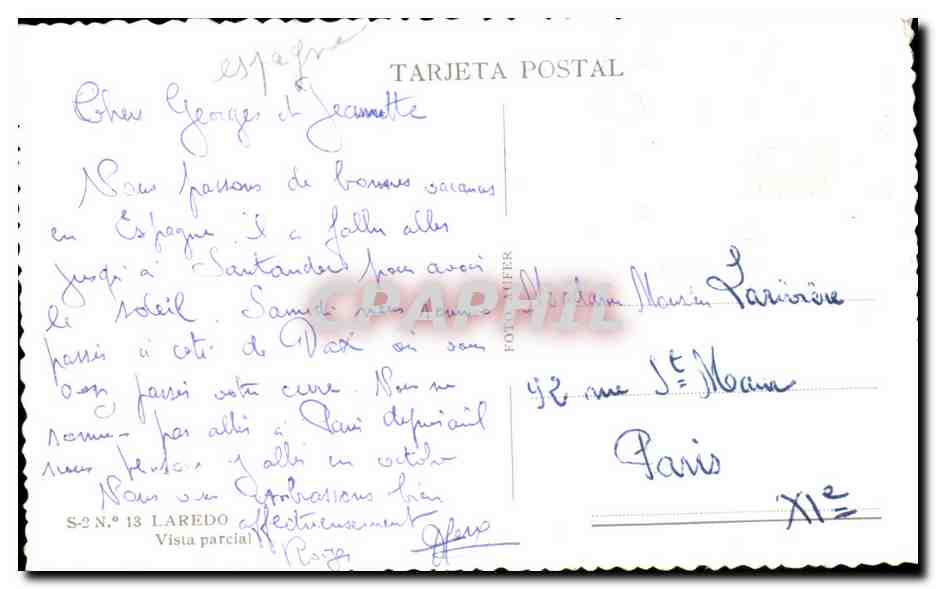 espagne
TARJETA POSTAL
Cher Georges et Jeannette
Nous passons de bonnes vacances
en Espagne. il a fallu aller
jusqu'à Santander pour avoir
le soleil. Samedi nous sommes
passés à coté de Dax où vous
avez passés votre cure. Nous ne
sommes pas allés à Paris depuis avril
nous pensons y aller en octobre
Nous vous embrassons bien
affectueusement
Roger
FOTO AUFER
Madame Monsieur Larivière
92 rue St Maur
Paris
XIe
S-2 N.º 13 LAREDO
Vista parcial
CPAPHIL